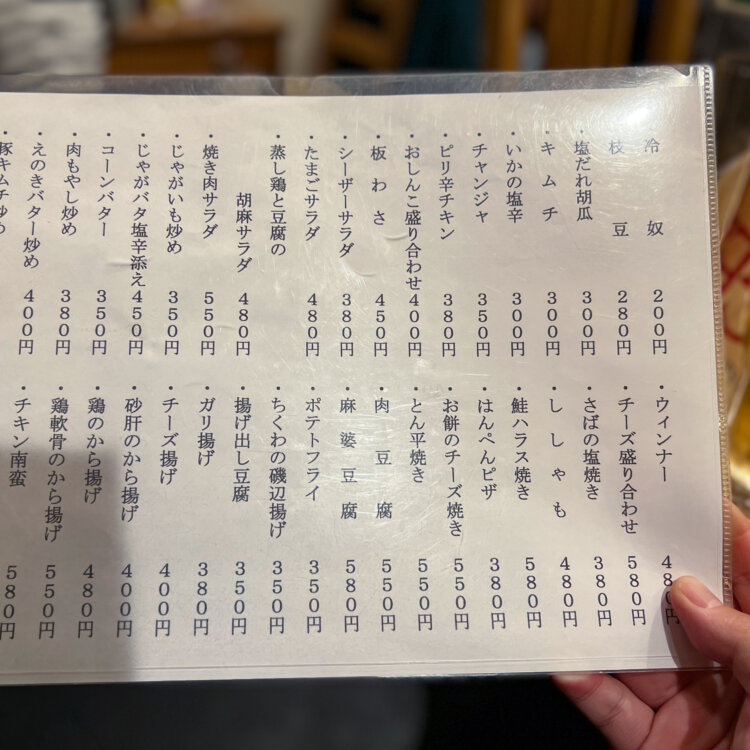 冷奴 200円
・枝豆 280円
・塩だれ胡瓜 300円
・キムチ 300円
・いかの塩辛 300円
・チャンジャ 350円
・ピリ辛チキン 380円
・おしんこ盛り合わせ 400円
・板わさ 450円
・シーザーサラダ 380円
・たまごサラダ 480円
・蒸し鶏と豆腐の
胡麻サラダ 480円
・焼き肉サラダ 550円
・じゃがいも炒め 350円
・じゃがバタ塩辛添え 450円
・コーンバター 350円
・肉もやし炒め 380円
・えのきバター炒め 400円
・豚キムチ炒め
・ウィンナー 480円
・チーズ盛り合わせ 580円
・さばの塩焼き 380円
・ししゃも 480円
・鮭ハラス焼き 580円
・はんぺんピザ 380円
・お餅のチーズ焼き 550円
・とん平焼き 550円
・肉豆腐 550円
・麻婆豆腐 580円
・ポテトフライ 350円
・ちくわの磯辺揚げ 350円
・揚げ出し豆腐 350円
・ガリ揚げ 380円
・チーズ揚げ 400円
・砂肝のから揚げ 400円
・鶏のから揚げ 480円
・鶏軟骨のから揚げ 550円
・チキン南蛮 580円